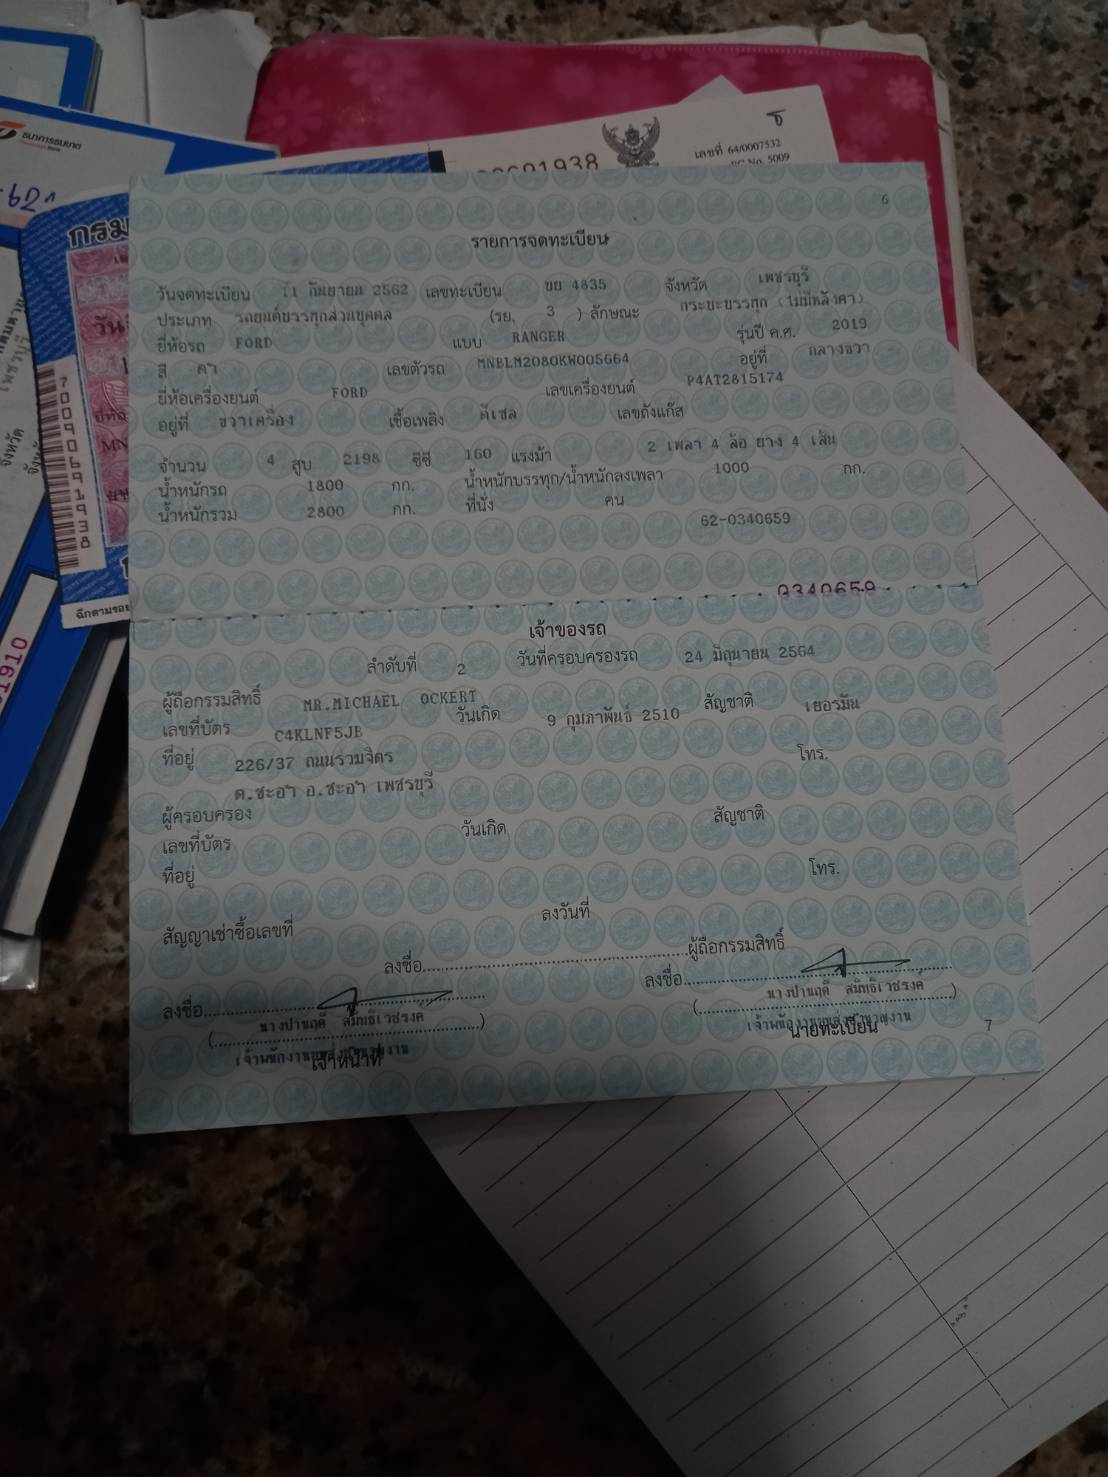 ธนาคารธนชาต
กรม
70090691938
เลขที่ 64/0007532
5009
6
รายการจดทะเบียน
วันจดทะเบียน 11 กันยายน 2562 เลขทะเบียน ขย 4835 จังหวัด เพชรบุรี
ประเภท รถยนต์บรรทุกส่วนบุคคล (รย. 3 ) ลักษณะ กระบะบรรทุก (ไม่มีหลังคา)
ยี่ห้อรถ FORD แบบ RANGER รุ่นปี ค.ศ. 2019
สี ดำ เลขตัวรถ MNBLM2080KW005664 อยู่ที่ กลางขวา
ยี่ห้อเครื่องยนต์ FORD เลขเครื่องยนต์ P4AT2815174
อยู่ที่ ขวาเครื่อง เชื้อเพลิง ดีเซล เลขถังแก๊ส
จำนวน 4 สูบ 2198 ซีซี 160 แรงม้า 2 เพลา 4 ล้อ ยาง 4 เส้น
น้ำหนักรถ 1800 กก. น้ำหนักบรรทุก/น้ำหนักลงเพลา 1000 กก.
น้ำหนักรวม 2800 กก. ที่นั่ง คน
62-0340659
0340659
เจ้าของรถ
ลำดับที่ 2 วันที่ครอบครองรถ 24 มิถุนายน 2564
ผู้ถือกรรมสิทธิ์ MR.MICHAEL OCKERT
เลขที่บัตร C4KLNF5JB วันเกิด 9 กุมภาพันธ์ 2510 สัญชาติ เยอรมัน
ที่อยู่ 226/37 ถนนร่วมจิตร โทร.
ต.ชะอำ อ.ชะอำ เพชรบุรี
ผู้ครอบครอง
เลขที่บัตร วันเกิด สัญชาติ
ที่อยู่ โทร.
สัญญาเช่าซื้อเลขที่ ลงวันที่
ลงชื่อ ผู้ถือกรรมสิทธิ์
ลงชื่อ ลงชื่อ
เจ้าหน้าที่ นายทะเบียน
7
ฉีกตามรอย
1910